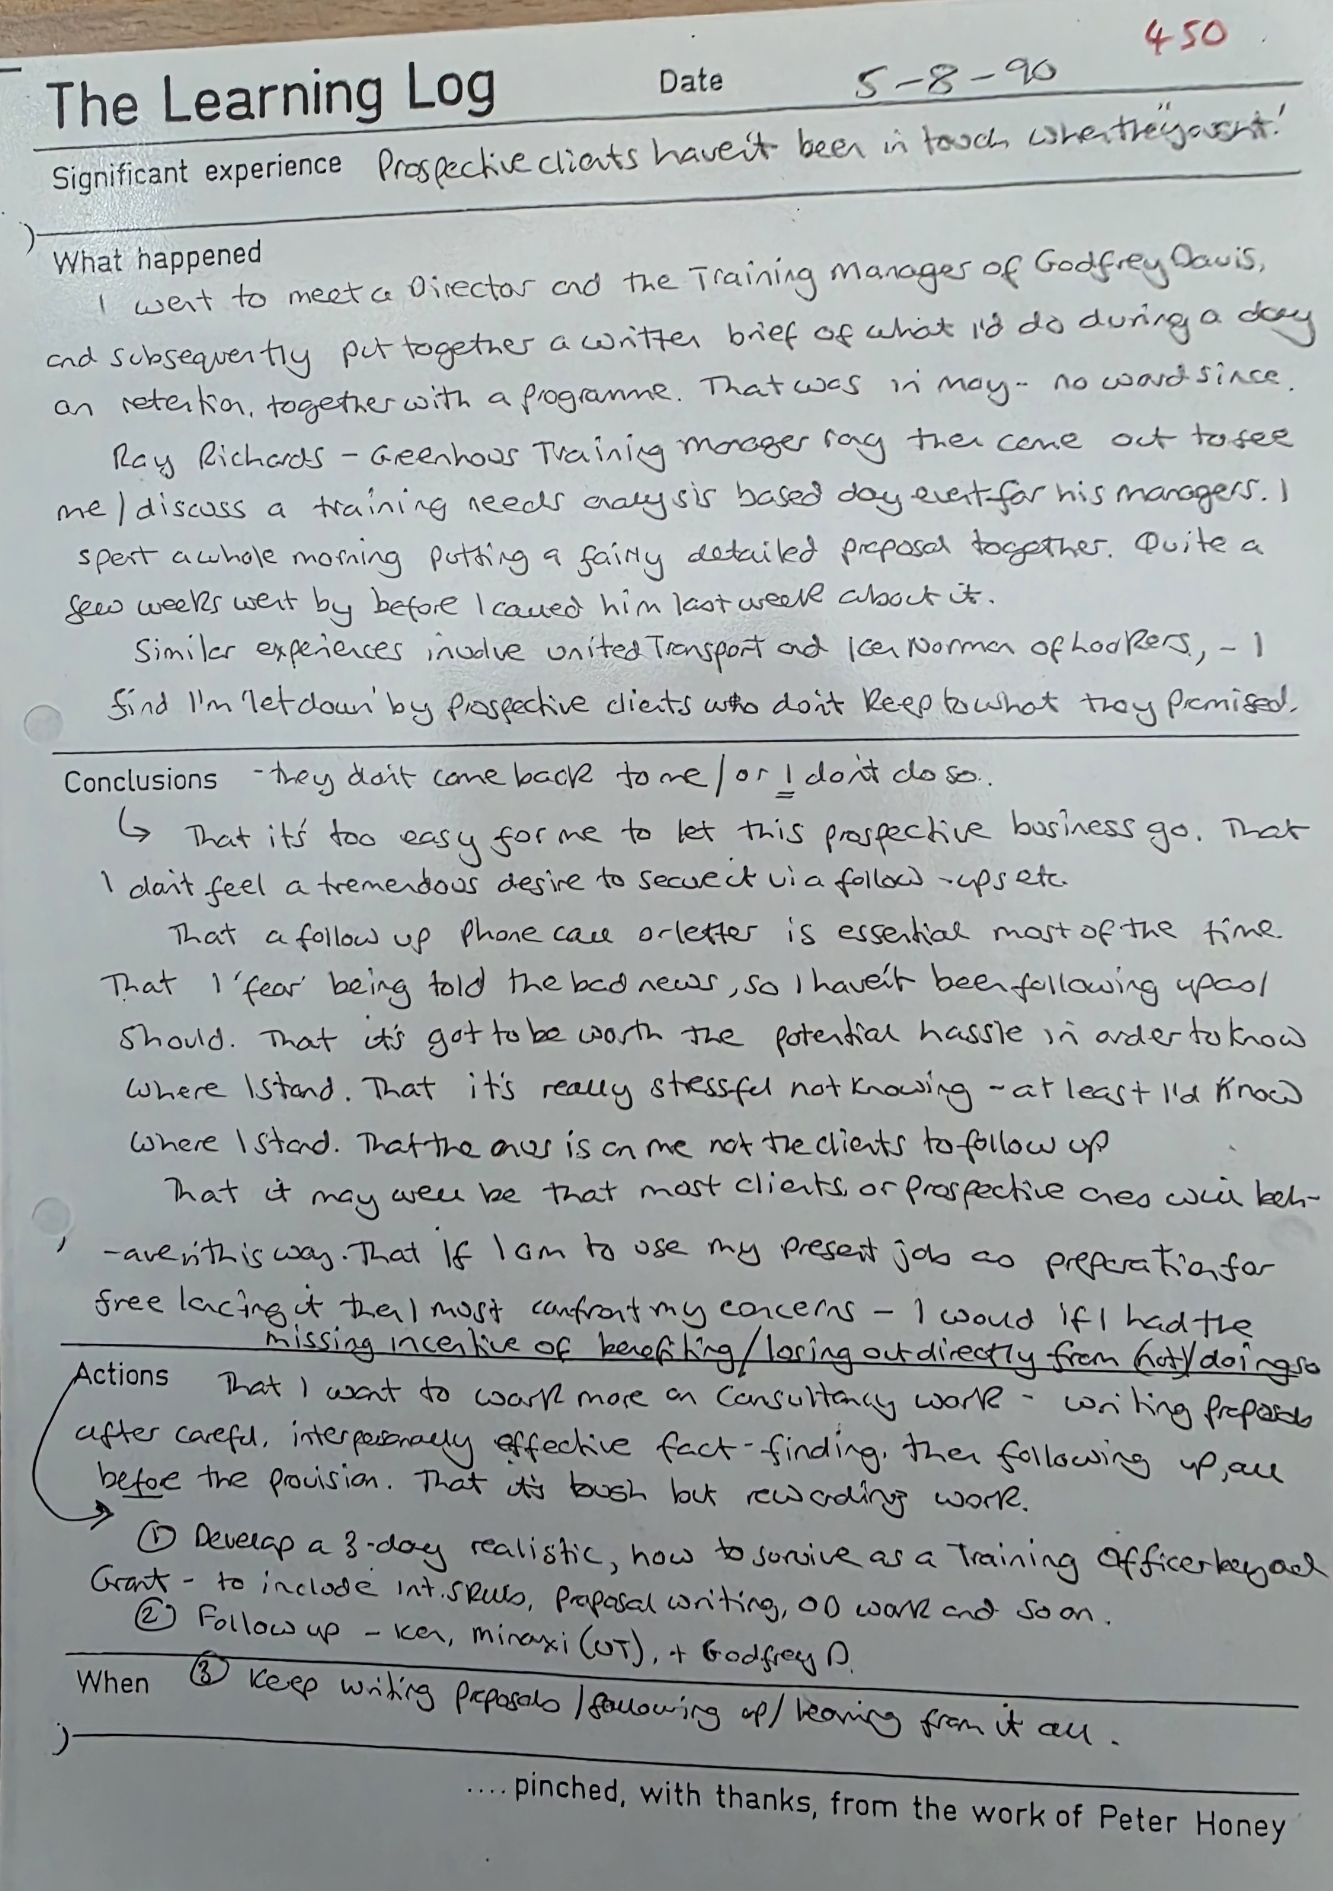 450
The Learning Log Date 5-8-90
Significant experience Prospective clients haven't been in touch when they
What happened
I went to meet a Director and the Training Manager of Godfrey Davis,
and subsequently put together a written brief of what I'd do during a day
on retention, together with a programme. That was in May - no word since.
Ray Richards - Greenhous Training Manager rang then came out to see
me / discuss a training needs analysis based day event for his managers. I
spent a whole morning putting a fairly detailed proposal together. Quite a
few weeks went by before I called him last week about it.
Similar experiences involve United Transport and Ken Norman of Lookers, - I
find I'm 'let down' by prospective clients who don't keep to what they promised.
Conclusions - they don't come back to me / or I don't do so.
↳ That it's too easy for me to let this prospective business go. That
I don't feel a tremendous desire to secure it via follow-ups etc.
That a follow up phone call or letter is essential most of the time.
That I 'fear' being told the bad news, so I haven't been following up as I
should. That it's got to be worth the potential hassle in order to know
where I stand. That it's really stressful not knowing - at least I'd know
where I stand. That the onus is on me not the clients to follow up
That it may well be that most clients, or prospective ones will beh-
-ave in this way. That if I am to use my present job as preparation for
free lancing it then I must confront my concerns - I would if I had the
missing incentive of benefiting / losing out directly from (not) / doing so
Actions That I want to work more on consultancy work - writing proposals
after careful, interpersonally effective fact-finding, then following up, all
before the provision. That it's but rewarding work.
① Develop a 3-day realistic, how to survive as a Training Officer
Grant - to include int. skills, proposal writing, OD work and so on.
② Follow up - Ken, Minaxi (UT), + Godfrey D.
When ③ Keep writing proposals / following up / learning from it all.
.... pinched, with thanks, from the work of Peter Honey